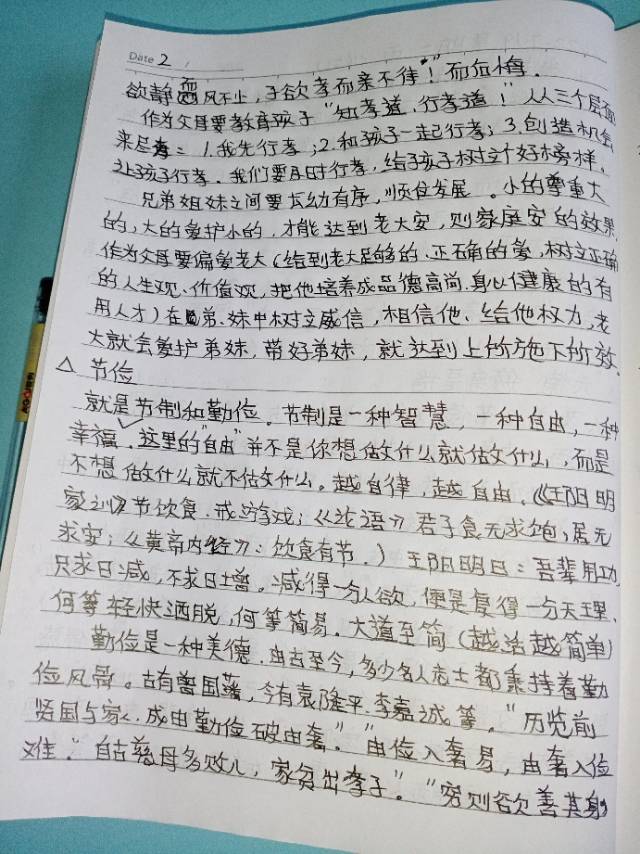 Date 2
欲静而风不止，子欲孝而亲不待！"而后悔．
作为父母要教育孩子"知孝道，行孝道！"从三个层面
来尽孝：1.我先行孝；2.和孩子一起行孝；3.创造机会
让孩子行孝．我们要及时行孝，给孩子树立个好榜样。
兄弟姐妹之间要长幼有序，顺位发展．。小的尊重大
的，大的爱护小的，才能达到老大安，则家庭安的效果
作为父母要偏爱老大（给到老大足够的、正确的爱，树立正确
的人生观、价值观，把他培养成品德高尚，身心健康的有
用人才）在兄弟、妹中树立威信，相信他、给他权力，老
大就会爱护弟妹，带好弟妹，就达到上所施下所效．
△ 节俭
就是节制和勤俭。节制是一种智慧，一种自由，一种
幸福．这里的"自由"并不是你想做什么就做什么，而是
不想做什么就不做什么。越自律，越自由．《王阳明
家训》节饮食．戒游戏；《论语》君子食无求饱，居无
求安；《黄帝内经》：饮食有节．）王阳明曰：吾辈用功，
只求日减，不求日增。减得一分人欲，便是复得一分天理．
何等轻快洒脱，何等简易．大道至简（越活越简单）
勤俭是一种美德．由古至今，多少名人志士都秉持着勤
俭风骨。古有曾国藩，今有袁隆平．李嘉诚等。"历览前
贤国与家，成由勤俭破由奢"．"由俭入奢易，由奢入俭
难．"自古慈母多败儿，家贫出孝子"。"穷则欲善其身